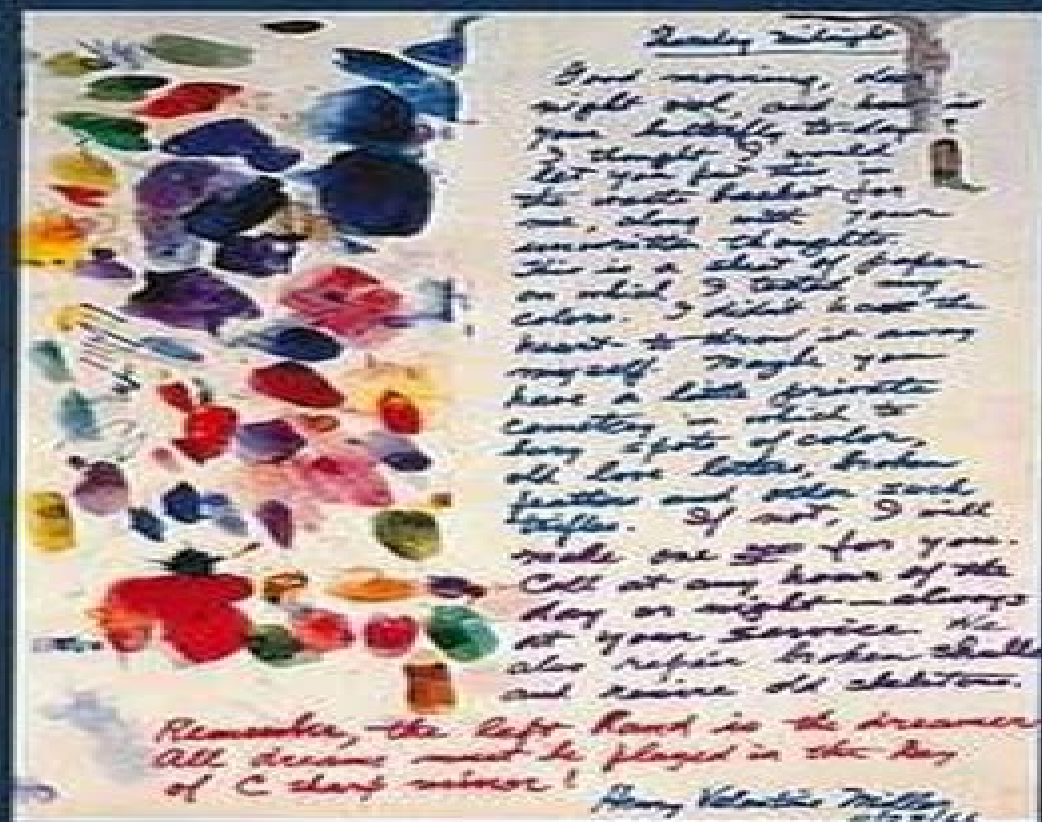 Tuesday Midnight
Good morning, dear
night owl, and how is
your butterfly to-day
I thought I would
let you put this in
the waste basket for
me, along with your
unwritten thoughts.
This is a sheet of paper
on which I tested my
colors. I didn't have the
heart to throw it away
myself. Maybe you
have a little private
cemetery in which to
bury spots of color,
old love letters, broken
and other such
trifles. If not, I will
make one for you.
Call at any hour of the
day or night—always
at your service. We
also repair broken
and revive old skeletons.
Remember, the left hand is the dreamer
All dreams must be played in the key
of C sharp minor!
Henry Valentine Miller